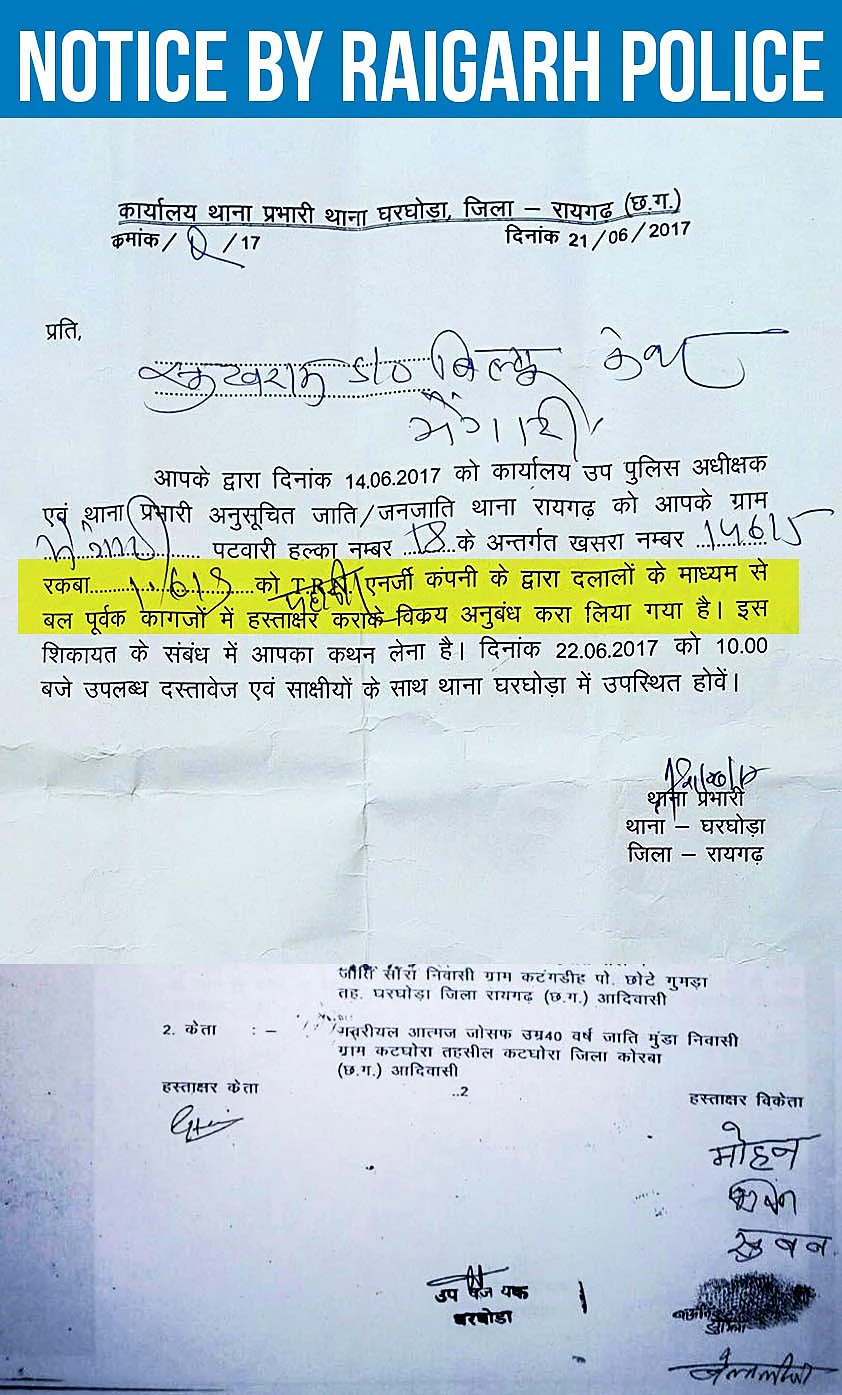 NOTICE BY RAIGARH POLICE
कार्यालय थाना प्रभारी थाना घरघोडा, जिला – रायगढ़ (छ.ग.)
कमांक / /17
दिनांक 21/06/2017
प्रति,
S/O
आपके द्वारा दिनांक 14.06.2017 को कार्यालय उप पुलिस अधीक्षक
एवं थाना प्रभारी अनुसूचित जाति/जनजाति थाना रायगढ़ को आपके ग्राम
.................... पटवारी हल्का नम्बर ...18...के अन्तर्गत खसरा नम्बर ...
रकबा.......................को एनर्जी कंपनी के द्वारा दलालों के माध्यम से
बल पूर्वक कागजों में हस्ताक्षर कराके विक्रय अनुबंध करा लिया गया है। इस
शिकायत के संबंध में आपका कथन लेना है। दिनांक 22.06.2017 को 10.00
बजे उपलब्ध दस्तावेज एवं साक्षीयों के साथ थाना घरघोडा में उपस्थित होवें।
थाना प्रभारी
थाना – घरघोडा
जिला – रायगढ़
जाति सौंरा निवासी ग्राम कटंगडीह पो. छोटे गुगड़ा
तह. घरघोडा जिला रायगढ़ (छ.ग.) आदिवासी
2. केता : – आत्मज जोसफ उम्र40 वर्ष जाति मुंडा निवासी
ग्राम कटघोरा तहसील कटघोरा जिला कोरबा
(छ.ग.) आदिवासी
हस्ताक्षर केता
..2
हस्ताक्षर विकेता
मोहन
उप
घरघोडा